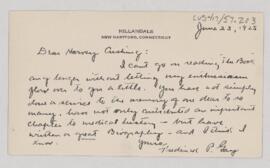 CUS417/57.203
HILLANDALE
NEW HARTFORD, CONNECTICUT
June 23, 1925
Dear Harvey Cushing:
I can't go on reading "the Book"
any longer without letting my enthusiasm
flow over to you a little. You have not simply
done a service to the memory of one dear to so
many, have not only contributed an important
chapter to medical history — but have
written a great Biography — and I think I
know.
Yours,
Frederick P.